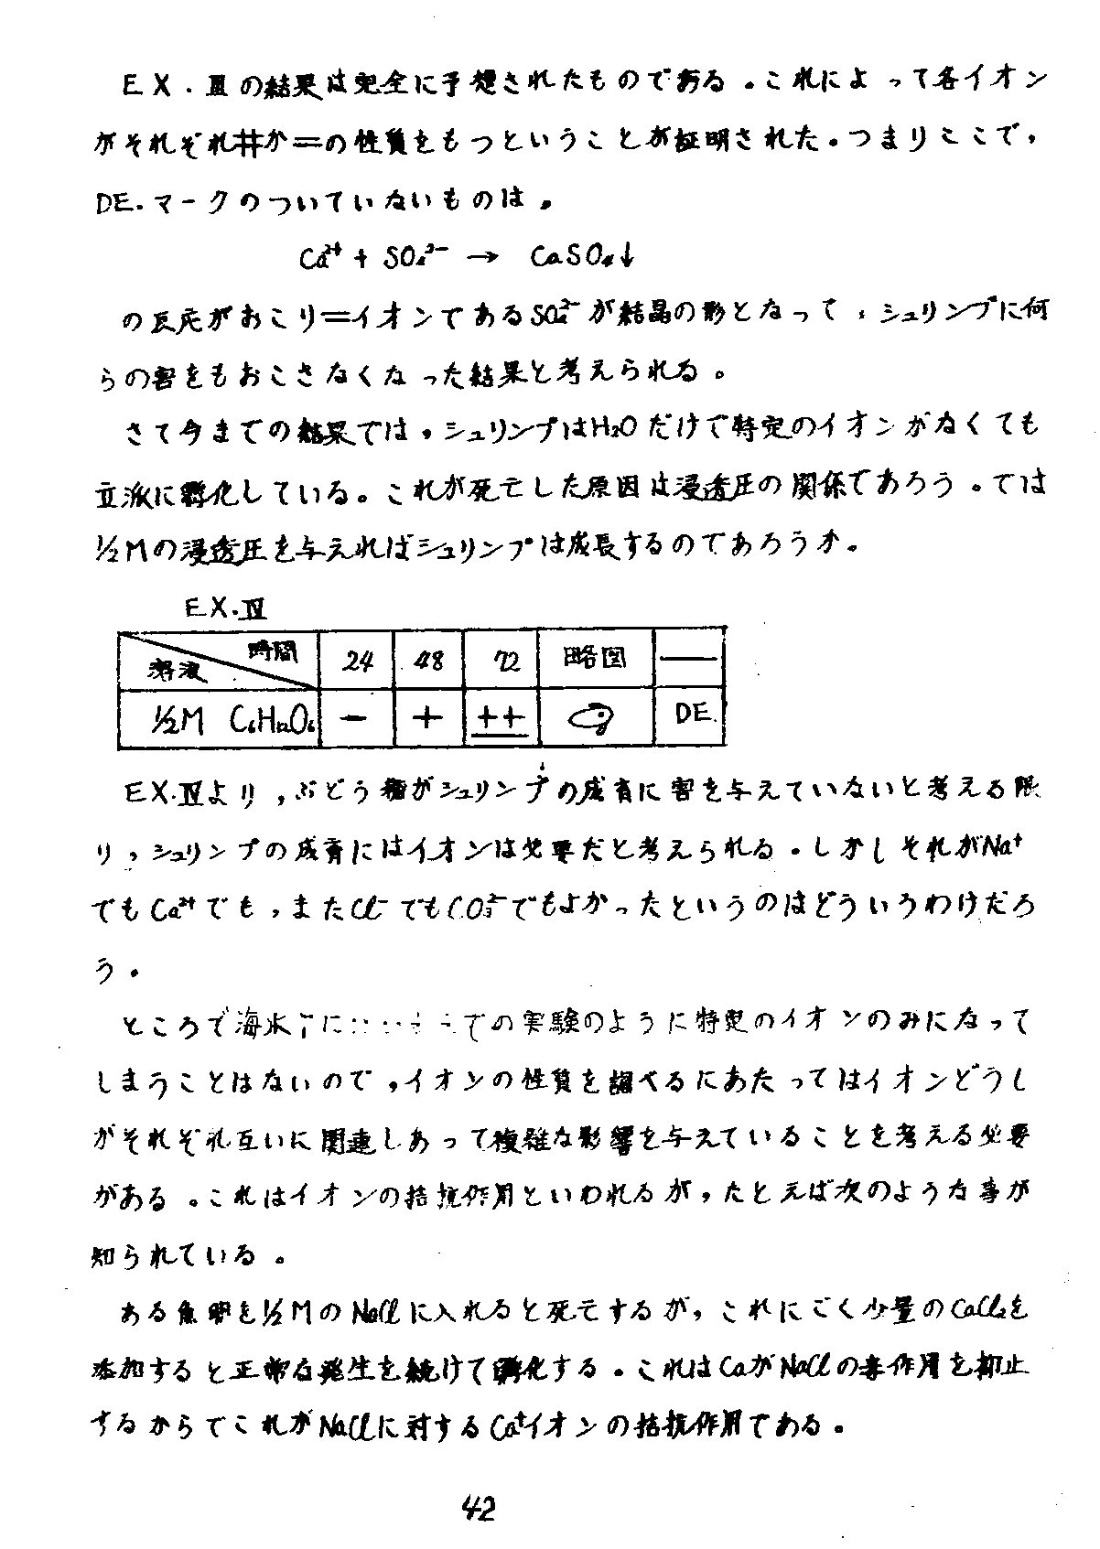 EX.Ⅲの結果は完全に予想されたものである。これによって各イオン
がそれぞれ井か=の性質をもつということが証明された。つまりここで,
DE.マークのついていないものは。
Ca²⁺ + SO₄²⁻ → CaSO₄↓
の反応がおこり=イオンであるSO₄²⁻が結晶の形となって,シュリンプに何
らの害をもおこさなくなった結果と考えられる。
さて今までの結果では,シュリンプはH₂Oだけで特定のイオンがなくても
立派に孵化している。これが死亡した原因は浸透圧の関係であろう。では
½Mの浸透圧を与えればシュリンプは成長するのであろうか。
EX.Ⅳ
時間 溶液 24 48 72 略図 —
½M C₆H₁₂O₆ − + ++ DE.
EX.Ⅳより,ぶどう糖がシュリンプの成育に害を与えていないと考える限
り,シュリンプの成育にはイオンは必要だと考えられる。しかしそれがNa⁺
でもCa²⁺でも,またCl⁻でもCO₃²⁻でもよかったというのはどういうわけだろ
う。
ところで海水 に での実験のように特定のイオンのみになって
しまうことはないので,イオンの性質を調べるにあたってはイオンどうし
がそれぞれ互いに関連しあって複雑な影響を与えていることを考える必要
がある。これはイオンの拮抗作用といわれるが,たとえば次のような事が
知られている。
ある魚卵を½MのNaClに入れると死亡するが,これにごく少量のCaCl₂を
添加すると正常な発生を続けて孵化する。これはCaがNaClの毒作用を抑止
するからでこれがNaClに対するCa⁺イオンの拮抗作用である。
42